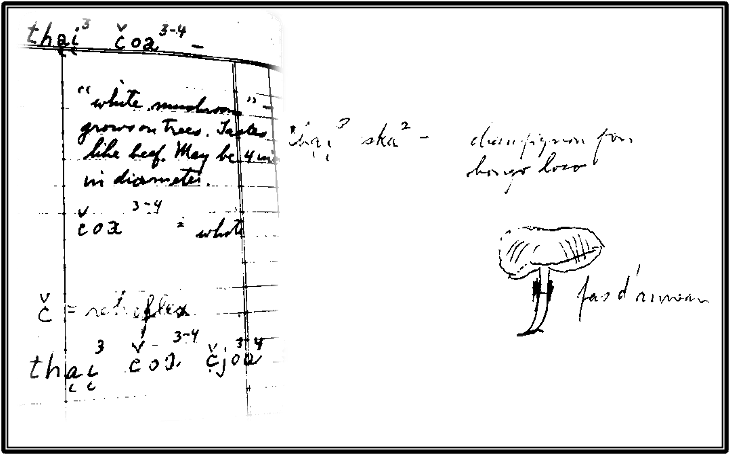 thą̨i³ čoa³⁻⁴ –
"white mushroom" –
grows on trees. Tastes
like beef. May be 4 in
in diameter.
čox³⁻⁴ = white
č = retroflex
thą̨i³ čox³⁻⁴ čjoa³⁻⁴
thą̨i³ ska² – champignon fou
hongo loco
pas d'anneau